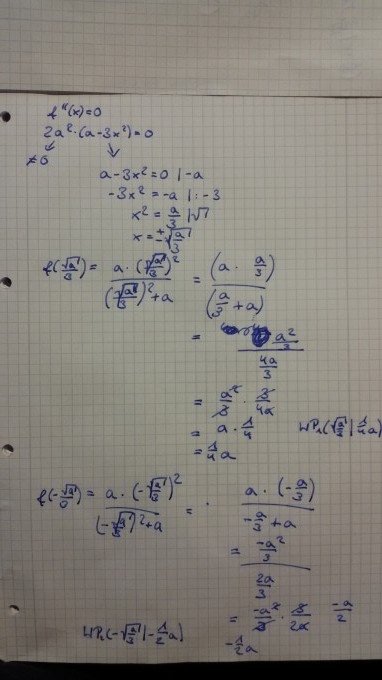 f''(x)=0
2a²·(a-3x²)=0
≠0
a-3x²=0 |-a
-3x²=-a |:-3
x²=a/3 |√
x=±√(a/3)
f(√(a/3)) = (a·(√(a/3))²)/((√(a/3))²+a) = (a·a/3)/(a/3+a)
= (a²/3)/(4a/3)
= a²/3 · 3/4a
= a·1/4
WP₁(√(a/3)|1/4a)
= 1/4a
f(-√(a/3)) = (a·(-√(a/3))²)/((-√(a/3))²+a) = (a·(-a/3))/(-a/3+a)
= (-a²/3)/(2a/3)
= -a²/3 · 3/2a -a/2
WP₂(-√(a/3)|-1/2a)
-1/2a